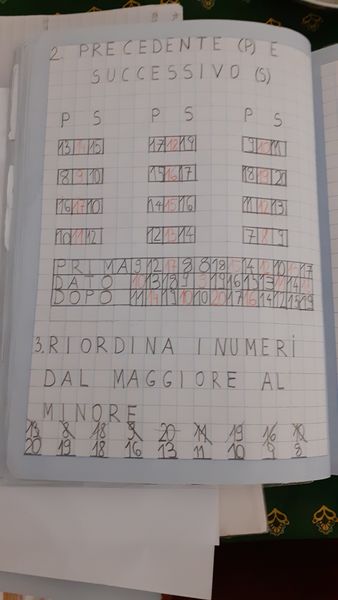 2. PRECEDENTE (P) E
SUCCESSIVO (S)
P S P S P S
13 14 15 17 18 19 9 10 11
8 9 10 15 16 17 18 19 20
16 17 10 14 15 16 11 12 13
10 11 12 12 13 14 7 8 9
PRIMA 9 12 17 8 8 18 15 14
DATO 10 13 18 9 9 19 16 15 13
DOPO 11 14 19 10 10 20 17 16 14 12
3. RIORDINA I NUMERI
DAL MAGGIORE AL
MINORE
13 8 18 9 20 11 19 16 10
20 19 18 16 13 11 10 9 8